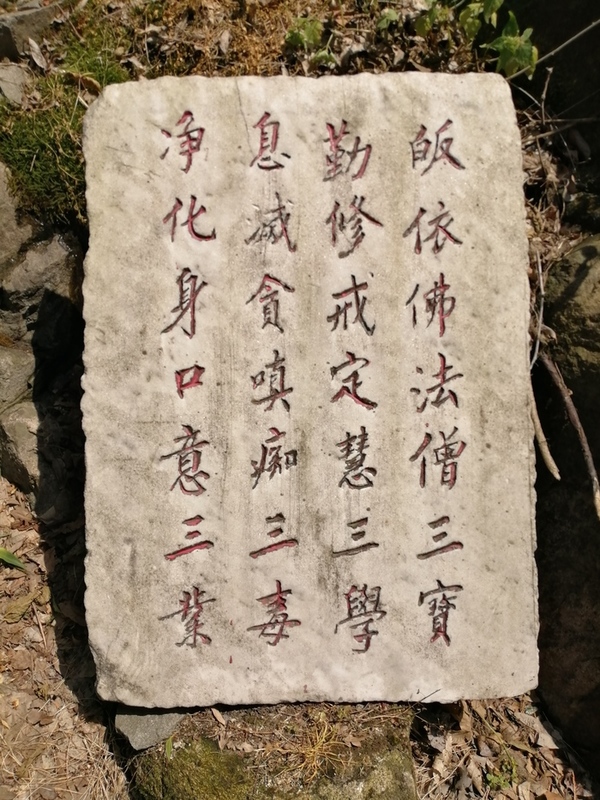 皈依佛法僧三寶
勤修戒定慧三學
息滅貪嗔痴三毒
净化身口意三業